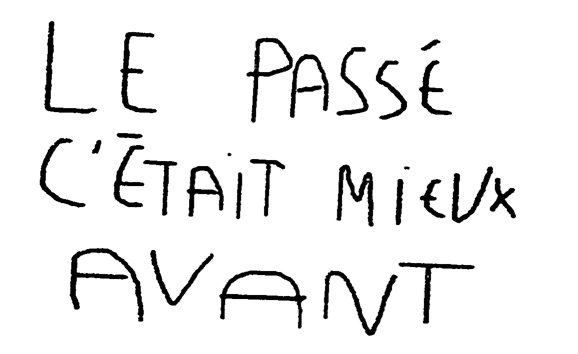 LE PASSÉ
C'ÉTAIT MiEUX
AVANT